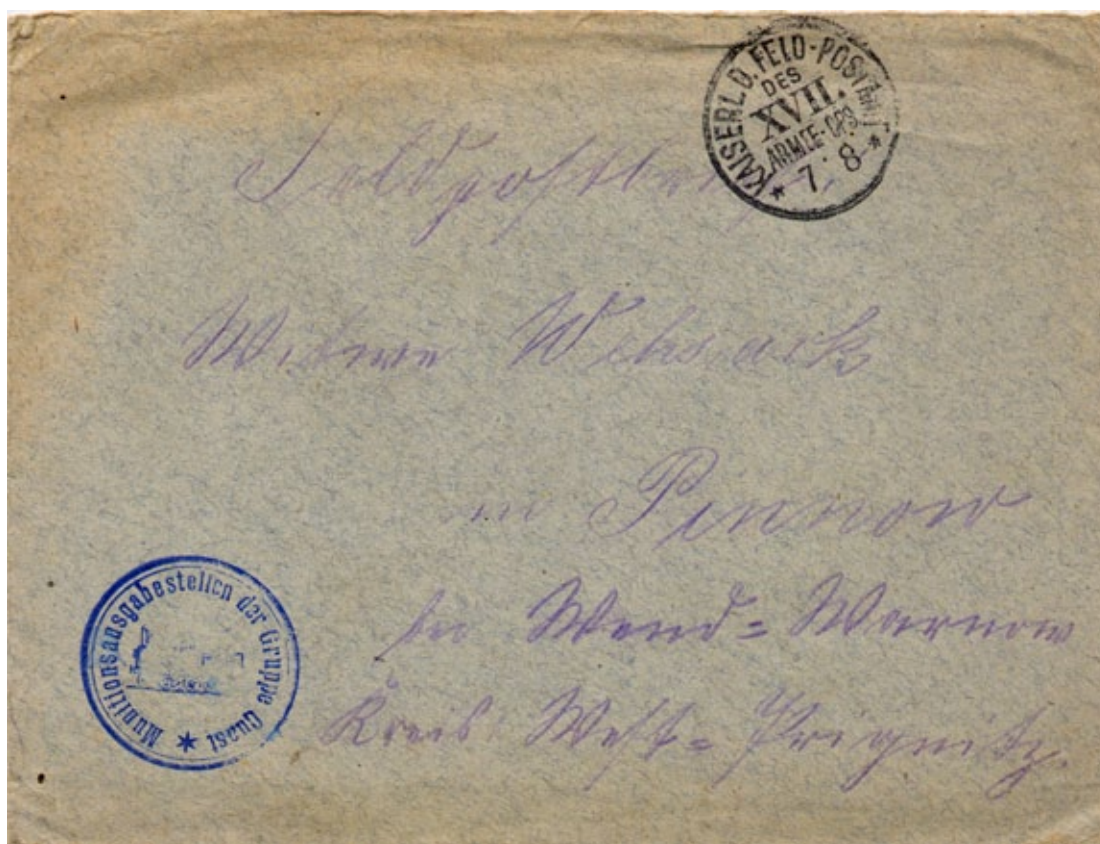 KAISERL.D. FELD-POSTAMT
DES
XVII.
ARMEE-CPS.
* 7. 8. *
Feldpostbrief
Witwe Wehsack
in Pinnow
bei Wend=Warnow
Kreis West=Prignitz.
Munitionsausgabestellen der Gruppe Quast *